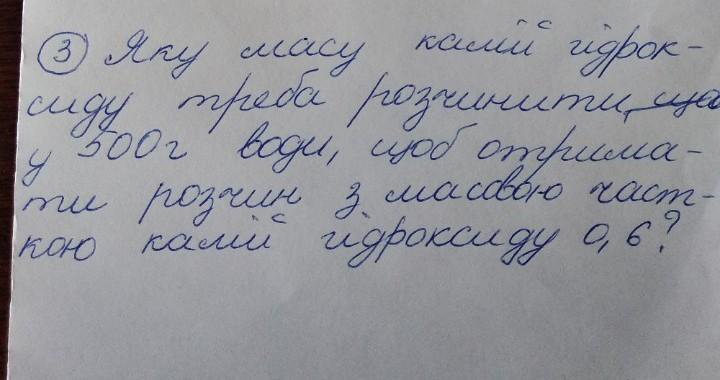 ③ Яку масу калій гідрок-
сиду треба розчинити, що
у 500г води, щоб отрима-
ти розчин з масовою част-
кою калій гідроксиду 0,6?